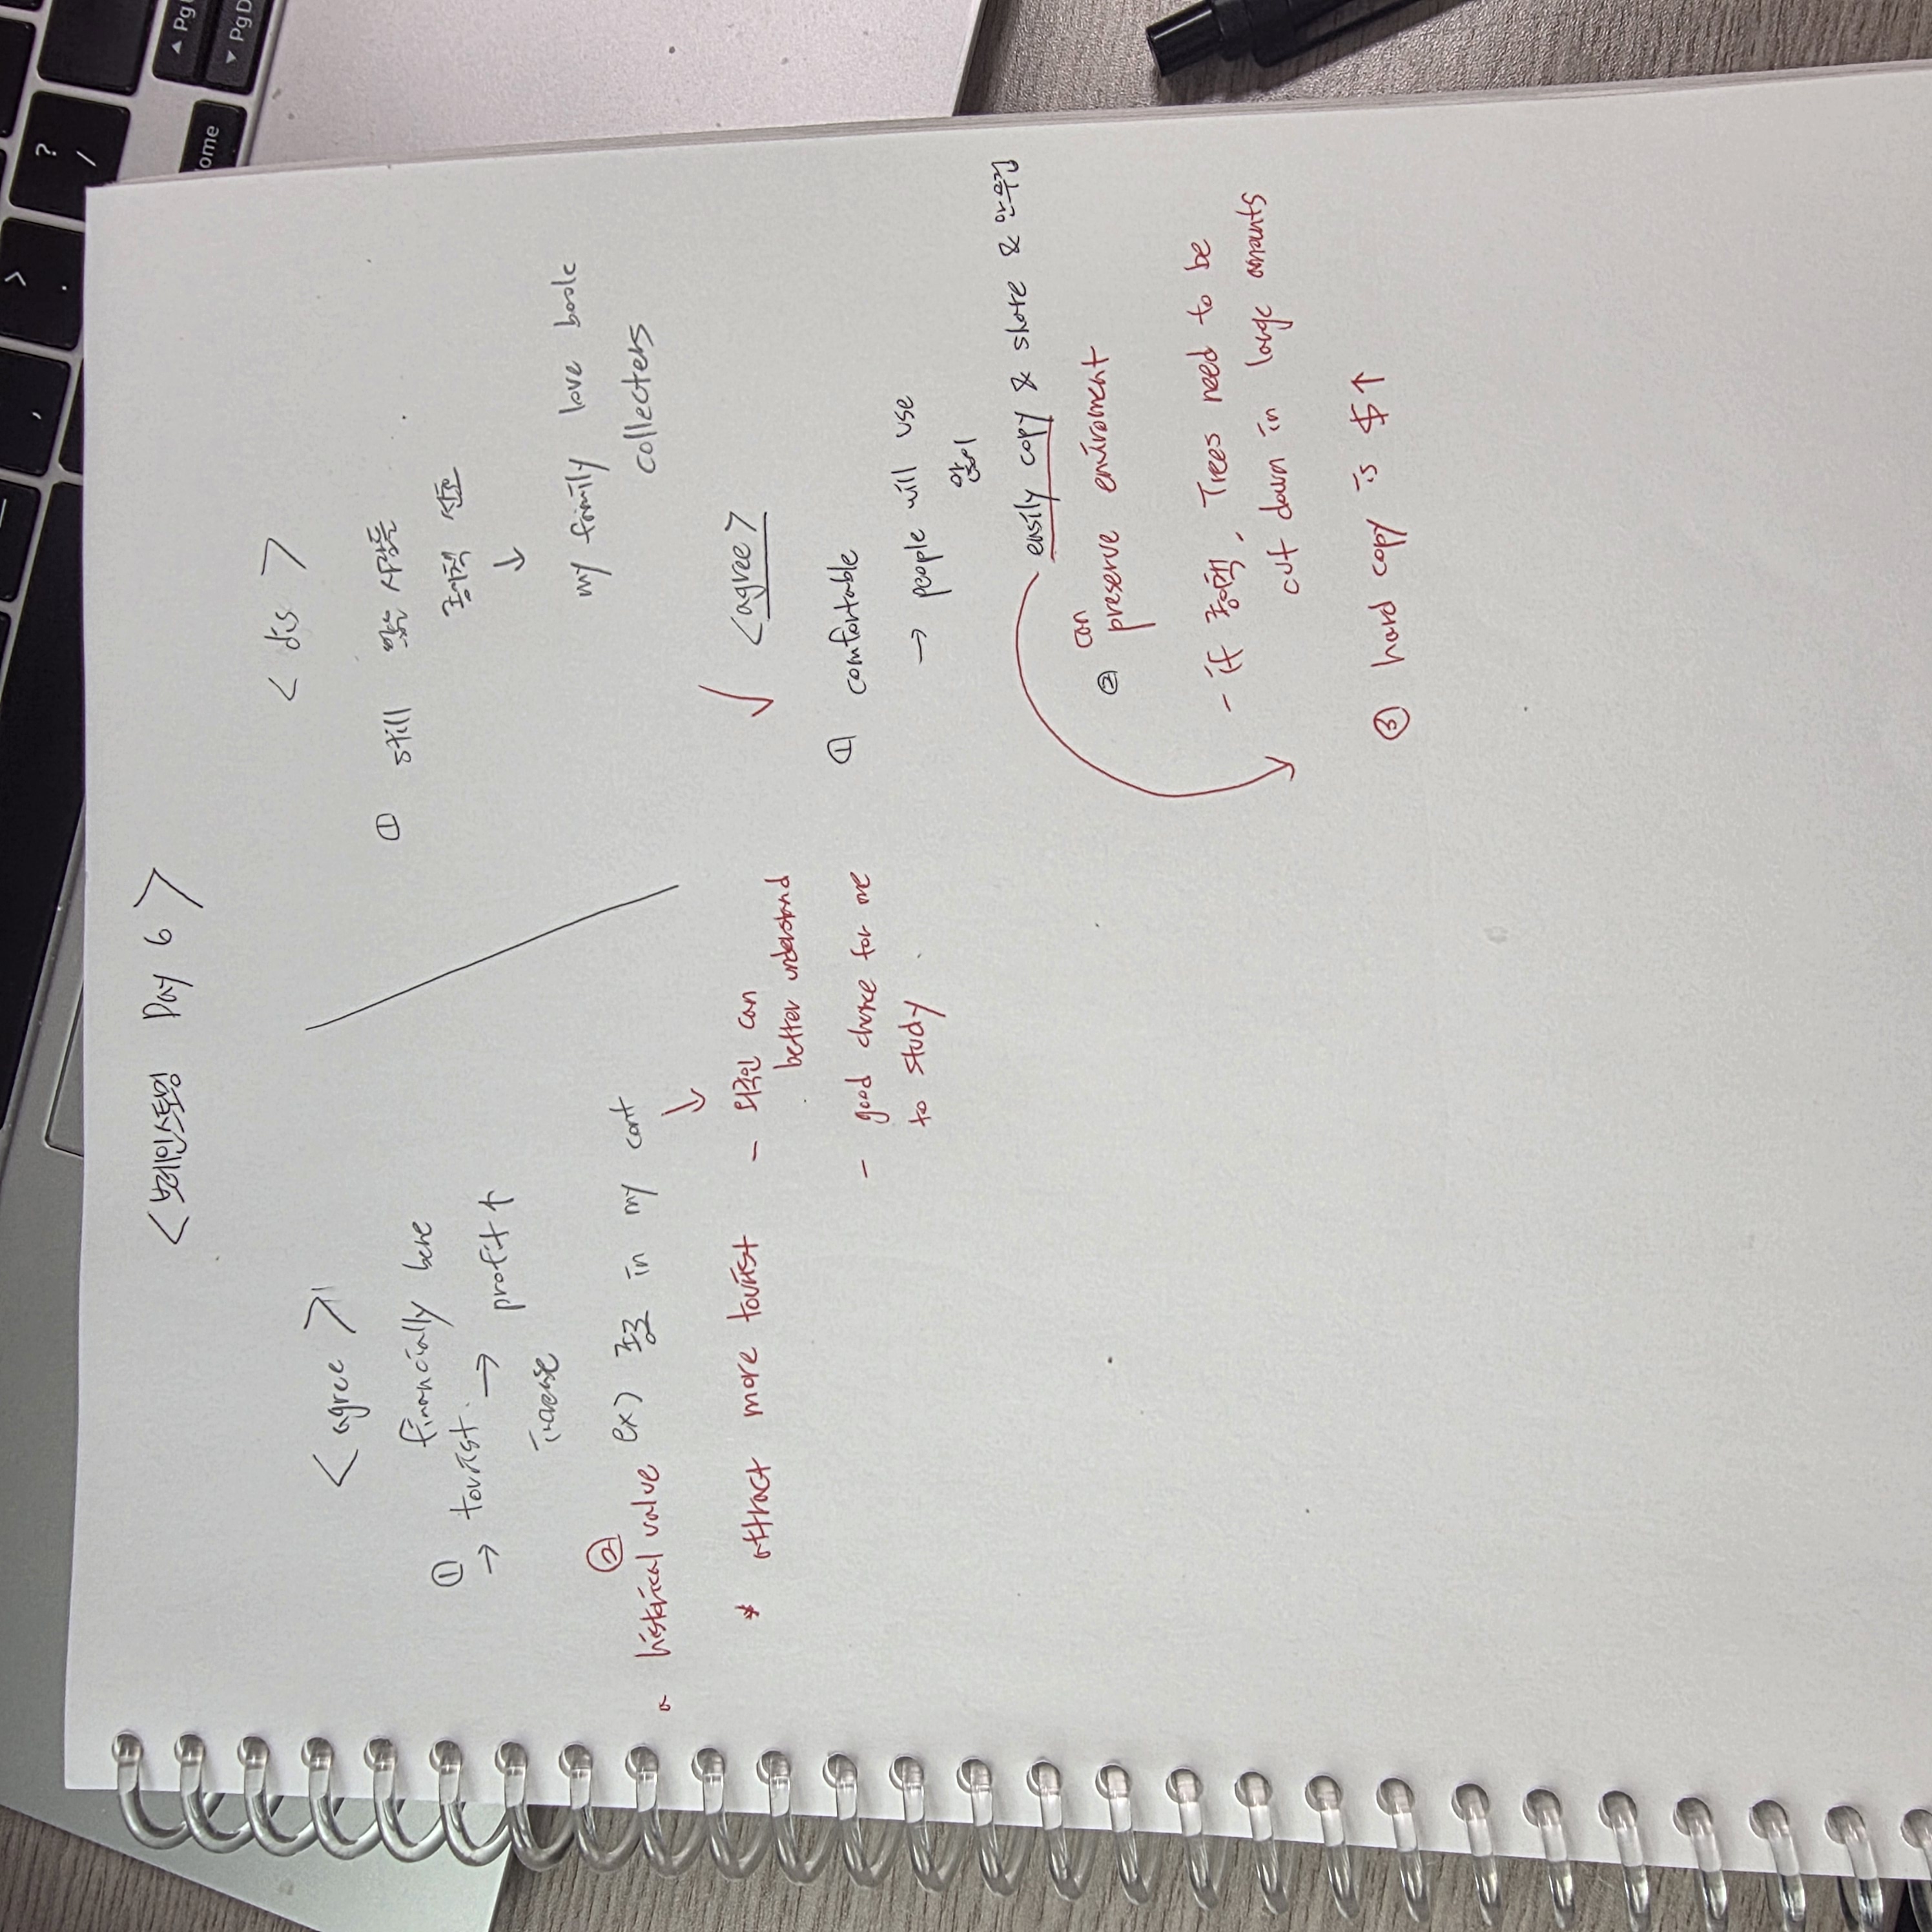 <브레인스토밍 Day 6>
<agree>
financially bene
① tourist → profit↑
→
increase
②
historical value ex) 종묘 in my cont
↓
* attract more tourist - 외국인 can
better understand
- good chance for me
to study
<dis>
① still 많은 사람들
종이책 선호
↓
my family love book
collecters
✓ <agree>
① comfortable
→ people will use
많이
easily copy & share & 안무거움
② can
preserve enviroment
- if 종이책, Trees need to be
cut down in large amounts
③ hard copy is $↑
? /
> .
,
ome
▲ PgU
▼ PgD